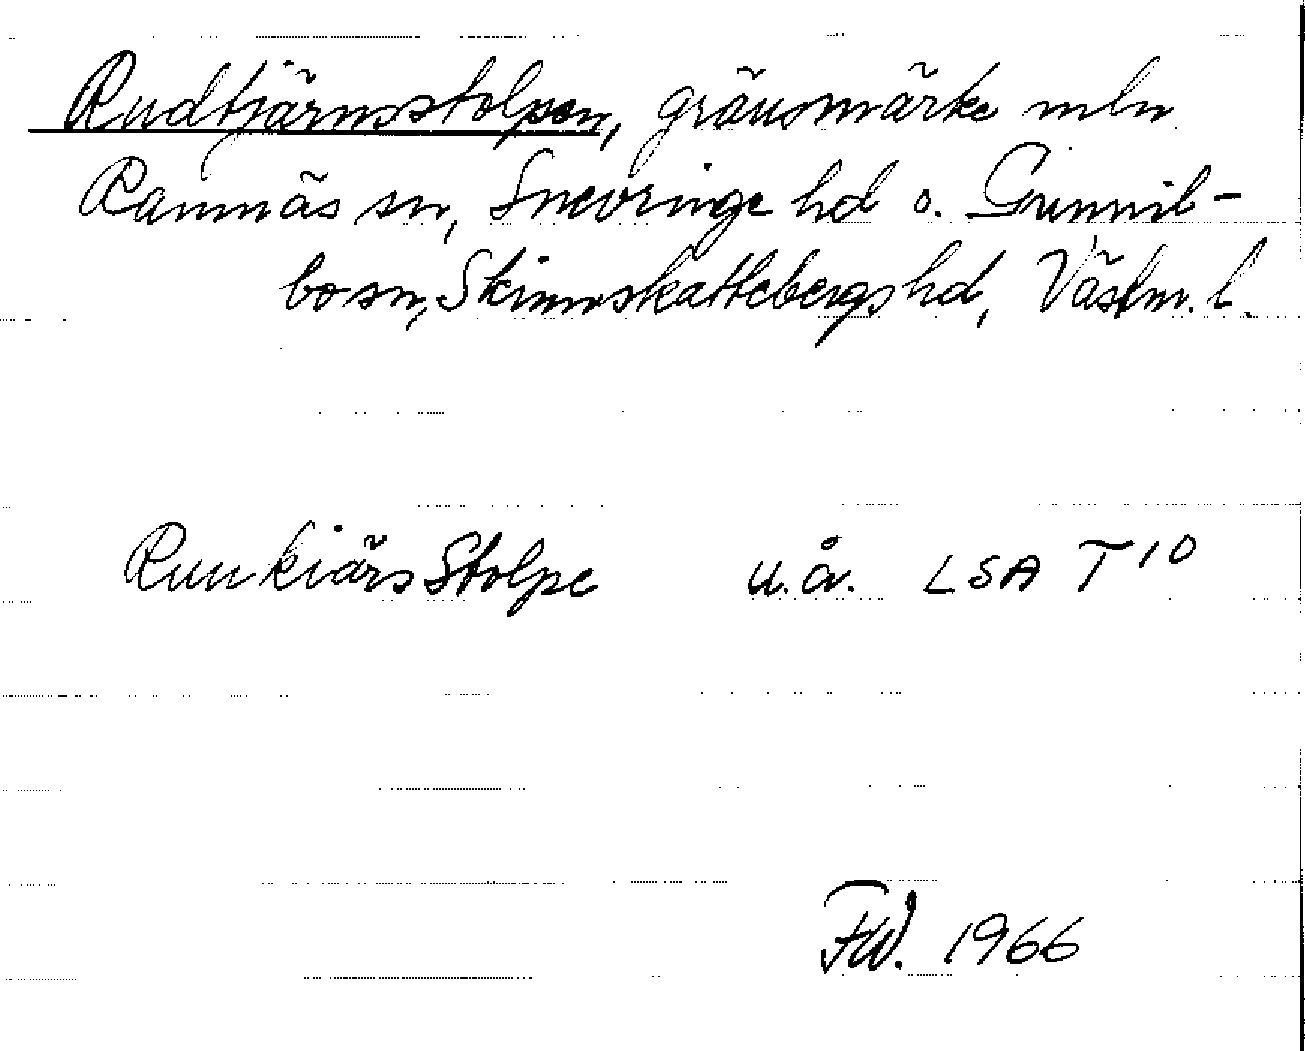 Rudtjärnsstolpen, gränsmärke mln
Ramnäs sn, Snevringe hd o. Gunnil-
bo sn, Skinnskattebergs hd, Västm. l.
Runkiärs Stolpe u.å. LSA T 10
F.W. 1966